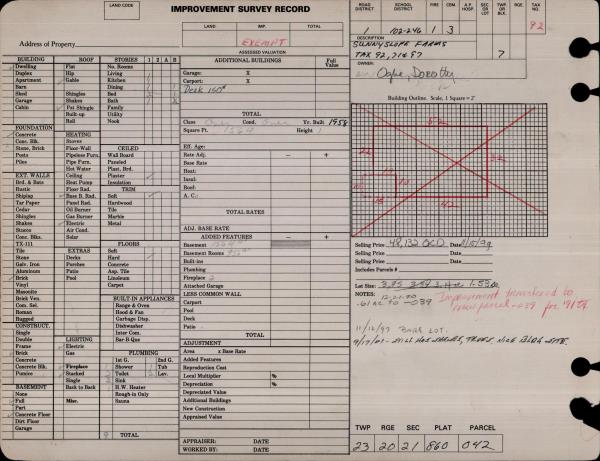 LAND CODE
IMPROVEMENT SURVEY RECORD
ROAD DISTRICT
SCHOOL DISTRICT
FIRE
CEM.
A.P. HOSP.
SEC. OR LOT
TWP OR BLK.
TAX NO.
1
102-246
1
3
92
LAND
IMP.
TOTAL
EXEMPT
ASSESSED VALUATION
DESCRIPTION
SUNNYSLOPE FARMS
TAX 92, 71 & 97
7
OWNER:
Address of Property
BUILDING
ROOF
STORIES
1 2 A B
Dwelling
Flat
No. Rooms
Duplex
Hip
Living
Apartment
Gable
Kitchen
Barn
Dining
Shed
Shingles
Bed
Garage
Shakes
Bath
Cabin
Pat. Shingle
Family
Built-up
Utility
Roll
Nook
FOUNDATION
Concrete
HEATING
Conc. Blk.
Stoves
CEILED
Stone, Brick
Floor Furn.
Wall Board
Posts
Pipeless Furn.
Paneled
Piles
Pipe Furn.
Plast. Brd.
Hot Water
Ceiling
EXT. WALLS
Radiant
Plaster
Brd. & Bats
Heat Pump
Insulation
Rustic
Floor Rad.
TRIM
Shiplap
Base B. Rad.
Soft
Tar Paper
Panel Rad.
Hardwood
Cedar
Oil Burner
Tile
Shingles
Gas Burner
Marble
Shakes
Electric
Metal
Stucco
Air Cond.
Conc. Blks.
Solar
TX-111
FLOORS
Tile
EXTRAS
Soft
Stone
Decks
Hard
Galv. Iron
Porches
Concrete
Aluminum
Patio
Asp. Tile
Brick
Pool
Linoleum
Vinyl
Carpet
Masonite
Brick Ven.
Com. Sel.
BUILT-IN APPLIANCES
Roman
Range & Oven
Rugged
Hood & Fan
CONSTRUCT.
Garbage Disp.
Single
Dishwasher
Double
LIGHTING
Inter Com.
Frame
Electric
Bar-B-Que
Brick
Gas
PLUMBING
Concrete
1st G.
2nd G.
Concrete Blk.
Fireplace
Shower
Tub
Pumice
Stacked
Toilet
Lav.
Single
Sink
BASEMENT
Back to Back
H.W. Heater
None
Rough-in Only
Full
Misc.
Sauna
Part
Concrete Floor
Dirt Floor
Garage
9 TOTAL
ADDITIONAL BUILDINGS
Full Value
Garage: X
Carport: X
Deck 150
TOTAL
Class
Cond.
Yr. Built 1958
Square Ft. 1564
Height 1
Eff. Age:
Rate Adj. — +
Base Rate
Heat:
Insul:
Roof:
A.C.:
TOTAL RATES
ADJ. BASE RATE
ADDED FEATURES — +
Basement 1564
Basement Rooms
Built-ins
Plumbing
Fireplace 2
Attached Garage
LESS COMMON WALL
Carport
Pool
Deck
Patio
TOTAL
ADJUSTMENT
Area x Base Rate
Added Features
Reproduction Cost
Local Multiplier %
Depreciation %
Depreciated Value
Additional Buildings
New Construction
Appraised Value
APPRAISER: DATE
WORKED BY: DATE
Building Outline. Scale, 1 Square = 2'
52
22
32
10
42
Selling Price 48,132 QCD
Selling Price
Selling Price
Includes Parcels #
Lot Size:
NOTES: 12-21-90
Improvement transferred to
new parcel -039 for '91
11/12/97 BARE LOT.
TWP
RGE
SEC
PLAT
PARCEL
23
20
21
860
042